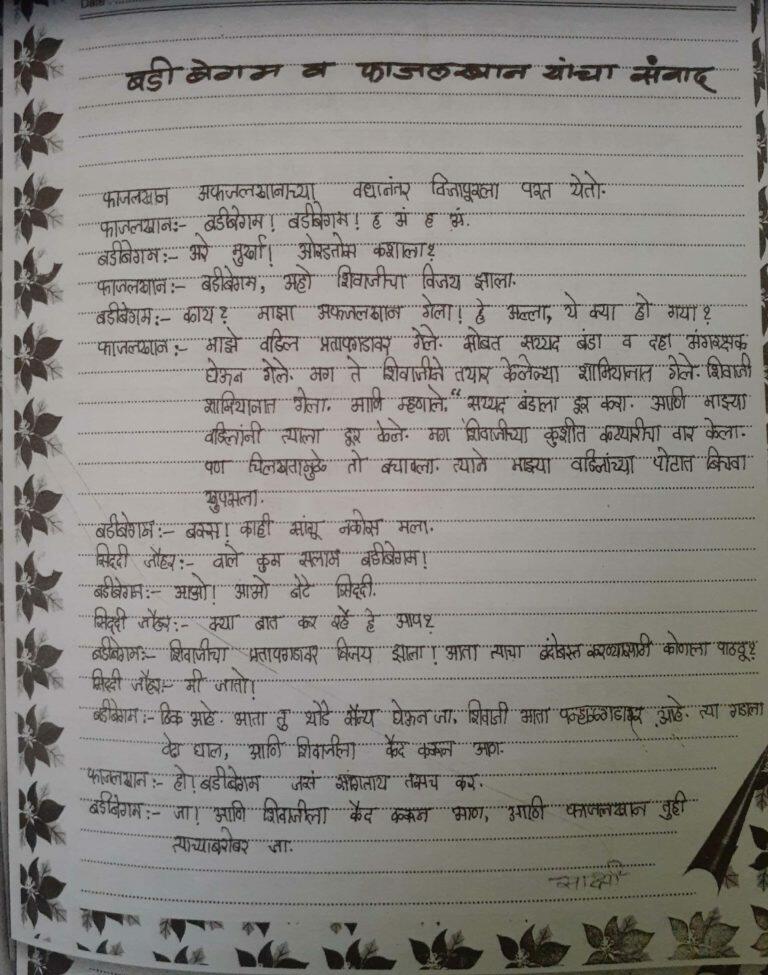 Date
बडी बेगम व फाजलखान यांचा संवाद
फाजलखान अफजलखानाच्या वधानंतर विजापूरला परत येतो.
फाजलखान:- बडीबेगम! बडीबेगम! हं अं हं अं.
बडीबेगम:- अरे मुर्खा! ओरडतोस कशाला?
फाजलखान:- बडीबेगम, अहो शिवाजीचा विजय झाला.
बडीबेगम:- काय? माझा अफजलखान गेला! हे अल्ला, ये क्या हो गया?
फाजलखान:- माझे वडिल प्रतापगडावर गेले. सोबत सय्यद बंडा व दहा अंगरक्षक
घेऊन गेले. मग ते शिवाजीने तयार केलेल्या शामियानात गेले. शिवाजी
शामियानात आला. आणि म्हणाले, "सय्यद बंडाला दूर करा. आणि माझ्या
वडिलांनी त्याला दूर केले. मग शिवाजीच्या कुशीत कट्यारीचा वार केला.
पण चिलखतामुळे तो बचावला. त्याने माझ्या वडिलांच्या पोटात बिचवा
खुपसला.
बडीबेगम:- बस्स! काही सांगू नकोस मला.
सिद्दी जौहर:- वाले कुम सलाम बडीबेगम!
बडीबेगम:- आओ! आओ बेटे सिद्दी.
सिद्दी जौहर:- क्या बात कर रहे हे आप?
बडीबेगम:- शिवाजीचा प्रतापगडावर विजय झाला! आता त्याचा बंदोबस्त करण्यासाठी कोणाला पाठवू?
सिद्दी जौहर:- मी जातो!
बडीबेगम:- ठिक आहे. आता तु थोडे सैन्य घेऊन जा. शिवाजी आता पन्हाळगडावर आहे. त्या गडाला
वेढा घाल, आणि शिवाजीला कैद करून आण.
फाजलखान:- हो! बडीबेगम जसं सांगताय तसच कर.
बडीबेगम:- जा! आणि शिवाजीला कैद करून आण, आणि फाजलखान तुही
त्याच्याबरोबर जा.
साक्षी